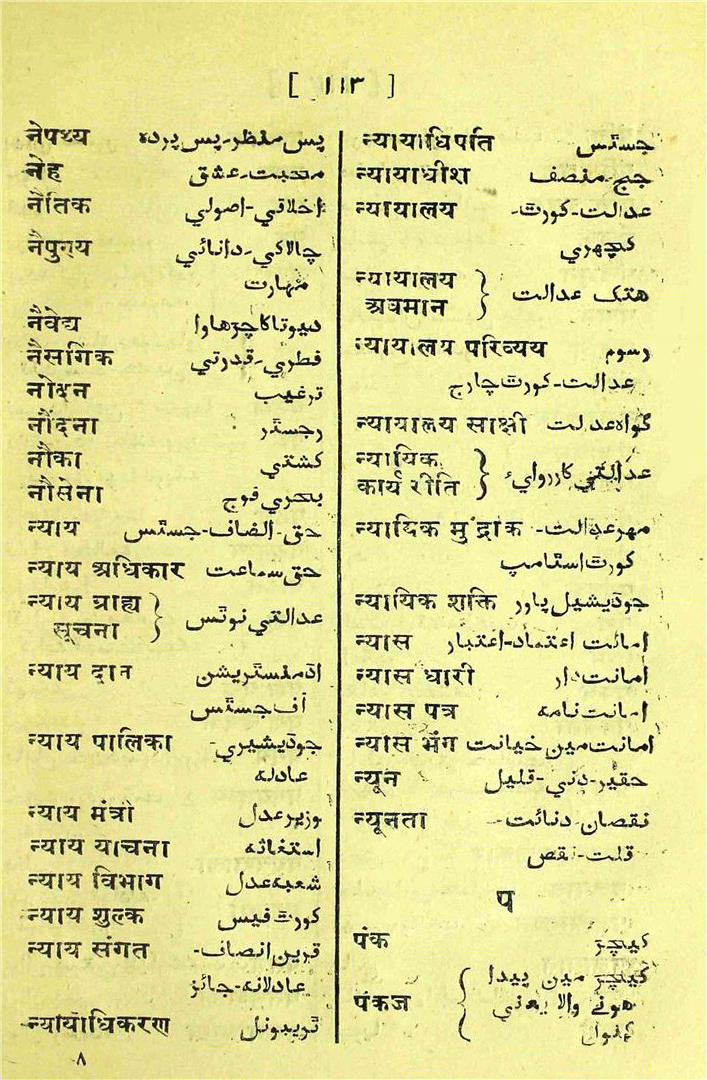 [ ١١٣ ]
नेपथ्य پس منظر-پس پرده
नेह محبت-عشق
नैतिक اخلاقي-اصولي
नैपुण्य چالاکي-دانائي
مهارت
नैवेद्य ديوتا کا چڑهاوا
नैसगिक فطري-قدرتي
नोदन ترغيب
नौंदना رجسٹر
नौका کشتي
नौसेना بحري فوج
न्याय حق-الضاف-جسٹس
न्याय अधिकार حق سماعت
न्याय ग्राह्य
सूचना عدالتي نوٹس
न्याय दान اڈمنسٹريشن
آف جسٹس
न्याय पालिका جوڈيشيري-
عادله
न्याय मंत्री وزير عدل
न्याय याचना استغاثه
न्याय विभाग شعبه عدل
न्याय शुल्क کورٹ فيس
न्याय संगत قرين انصاف-
عادلانه-جائز
न्यायाधिकरण ٹريبونل
٨
न्यायाधिपति جسٹس
न्यायाधीश جج-منصف
न्यायालय عدالت-کورٹ-
کچهري
न्यायालय
अवमान هتک عدالت
न्यायालय परिव्यय رسوم
عدالت-کورٹ چارج
न्यायालय साक्षी گواه عدالت
न्यायिक
कार्य रीति عدالتي کارروائي
न्यायिक मुद्रांक مهر عدالت-
کورٹ اسٹامپ
न्यायिक शक्ति جوڈيشيل پاور
न्यास امانت اعتماد-اعتبار
न्यास धारी امانت دار
न्यास पत्र امانت نامه
न्यास भंग امانت مين خيانت
न्यून حقير-دني-قليل
न्यूनता نقصان-دنائت-
قلت-نقص
प
पंक کيچڑ
کيچڑ مين پيدا
पंकज هونے والا يعني
کنول